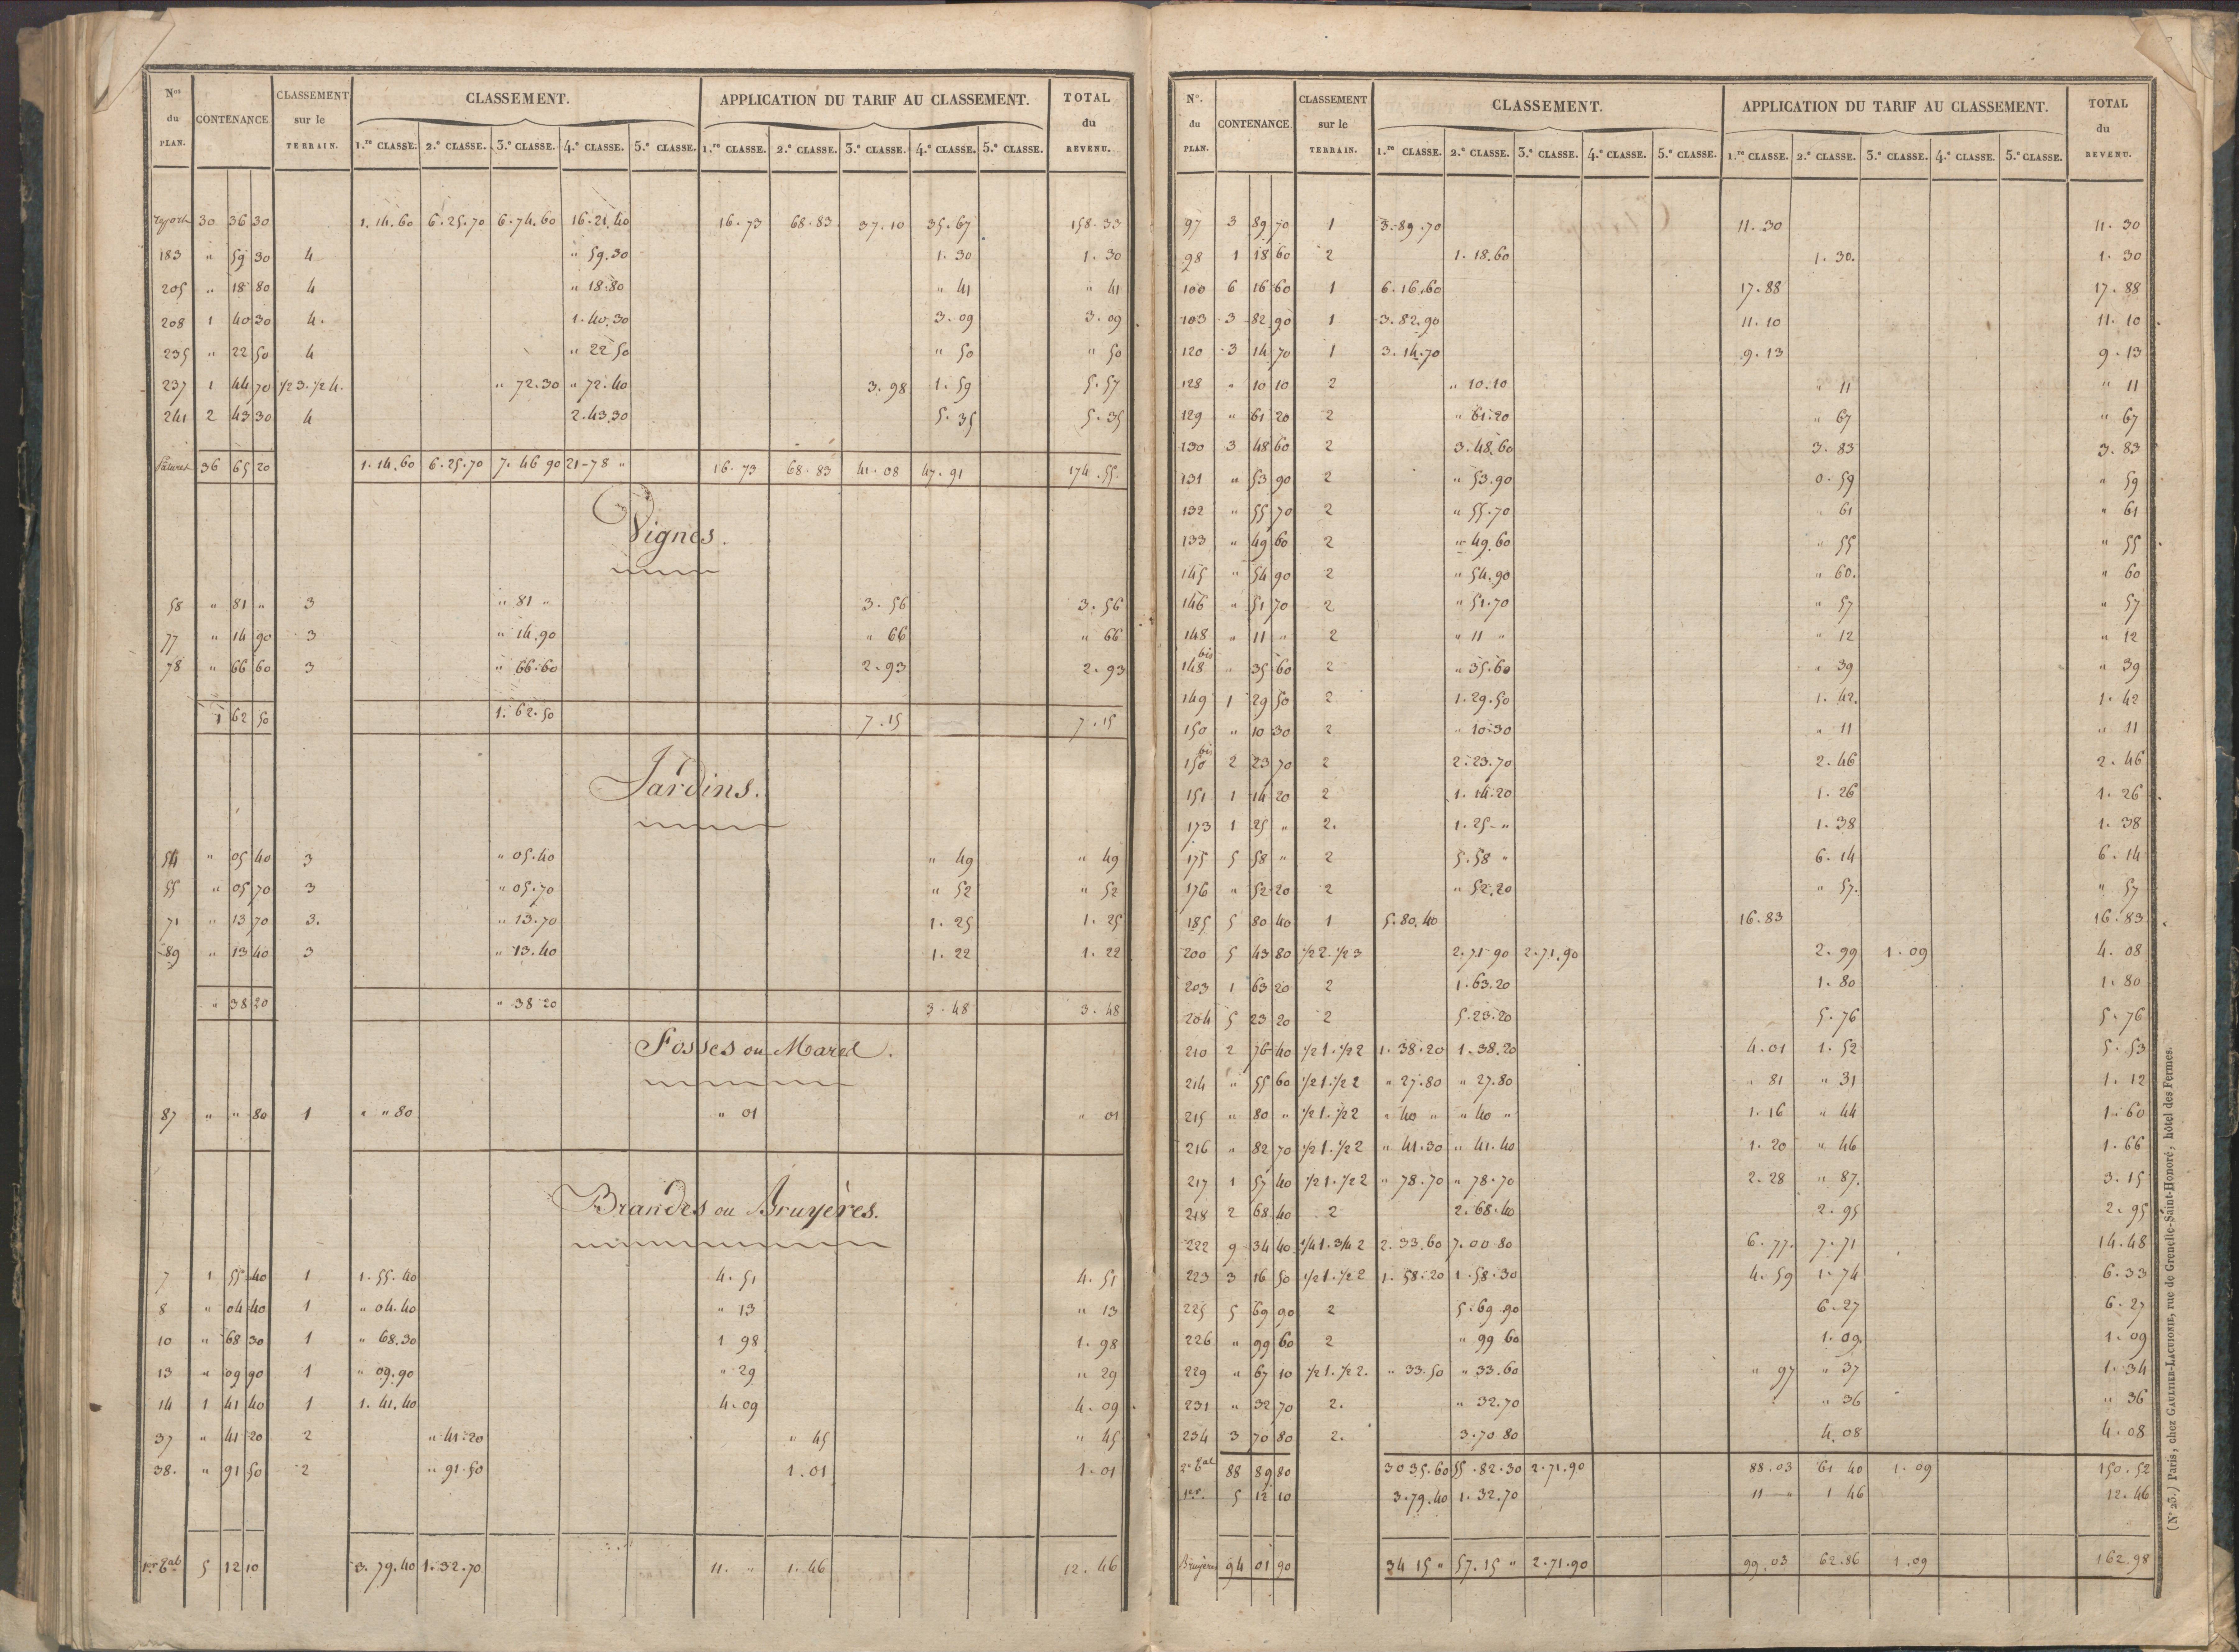 Nos du PLAN. CONTENANCE CLASSEMENT sur le TERRAIN. CLASSEMENT. APPLICATION DU TARIF AU CLASSEMENT. TOTAL du REVENU.
1.re CLASSE. 2.e CLASSE. 3.e CLASSE. 4.e CLASSE. 5.e CLASSE. 1.re CLASSE. 2.e CLASSE. 3.e CLASSE. 4.e CLASSE. 5.e CLASSE.
report 30 36 30 1.14.60 6.25.70 6.74.60 16.21.40 16.73 68.83 37.10 35.67 158.33
183 " 59 30 4 " 59.30 1.30 1.30
205 " 18 80 4 " 18.80 " 41 " 41
208 1 40 30 4. 1.40.30 3.09 3.09
235 " 22 50 4 " 22 50 " 50 " 50
237 1 44 70 1/2 3. 1/2 4. " 72.30 " 72.40 3.98 1.59 5.57
241 2 43 30 4 2.43.30 5.35 5.35
Patures 36 65 20 1.14.60 6.25.70 7.46 90 21-78 " 16.73 68.83 41.08 47.91 174.55
Vignes.
58 " 81 " 3 " 81 " 3.56 3.56
77 " 14 90 3 " 14.90 " 66 " 66
78 " 66 60 3 " 66.60 2.93 2.93
1 62 50 1.62.50 7.15 7.15
Jardins.
54 " 05 40 3 " 05.40 " 49 " 49
55 " 05 70 3 " 05.70 " 52 " 52
71 " 13 70 3. " 13.70 1.25 1.25
89 " 13 40 3 " 13.40 1.22 1.22
" 38 20 " 38 20 3.48 3.48
Fosses ou Mares.
87 " " 80 1 " " 80 " 01 " 01
Brandes ou Bruyères.
7 1 55 40 1 1.55.40 4.51 4.51
8 " 04 40 1 " 04.40 " 13 " 13
10 " 68 30 1 " 68.30 1 98 1.98
13 " 09 90 1 " 09.90 " 29 " 29
14 1 41 40 1 1.41.40 4.09 4.09
37 " 41 20 2 " 41.20 " 45 " 45
38. " 91 50 2 " 91.50 1.01 1.01
1er Tal 5 12 10 3.79.40 1.32.70 11. " 1.46 12.46
No. du PLAN. CONTENANCE. CLASSEMENT sur le TERRAIN. CLASSEMENT. APPLICATION DU TARIF AU CLASSEMENT. TOTAL du REVENU.
1.re CLASSE. 2.e CLASSE. 3.e CLASSE. 4.e CLASSE. 5.e CLASSE. 1.re CLASSE. 2.e CLASSE. 3.e CLASSE. 4.e CLASSE. 5.e CLASSE.
97 3 89 70 1 3.89.70 11.30 11.30
98 1 18 60 2 1.18.60 1.30. 1.30
100 6 16 60 1 6.16.60 17.88 17.88
103 3 82 90 1 3.82.90 11.10 11.10
120 3 14 70 1 3.14.70 9.13 9.13
128 " 10 10 2 " 10.10 " 11 " 11
129 " 61 20 2 " 61.20 " 67 " 67
130 3 48 60 2 3.48.60 3.83 3.83
131 " 53 90 2 " 53.90 0.59 " 59
132 " 55 70 2 " 55.70 " 61 " 61
133 " 49 60 2 " 49.60 " 55 " 55
145 " 54 90 2 " 54.90 " 60. " 60
146 " 51 70 2 " 51.70 " 57 " 57
148 " 11 " 2 " 11 " " 12 " 12
148 bis " 35 60 2 " 35.60 " 39 " 39
149 1 29 50 2 1.29.50 1.42. 1.42
150 " 10 30 2 " 10.30 " 11 " 11
150 bis 2 23 70 2 2.23.70 2.46 2.46
151 1 14 20 2 1.14.20 1.26 1.26
173 1 25 " 2. 1.25-" 1.38 1.38
175 5 58 " 2 5.58 " 6.14 6.14
176 " 52 20 2 " 52.20 " 57. " 57
185 5 80 40 1 5.80.40 16.83 16.83
200 5 43 80 1/2 2. 1/2 3 2.71 90 2.71.90 2.99 1.09 4.08
203 1 63 20 2 1.63.20 1.80 1.80
204 5 23 20 2 5.23.20 5.76 5.76
210 2 76 40 1/2 1. 1/2 2 1.38.20 1.38.20 4.01 1.52 5.53
214 " 55 60 1/2 1. 1/2 2 " 27.80 " 27.80 " 81 " 31 1.12
215 " 80 " 1/2 1. 1/2 2 " 40 " " 40 " 1.16 " 44 1.60
216 " 82 70 1/2 1. 1/2 2 " 41.30 " 41.40 1.20 " 46 1.66
217 1 57 40 1/2 1. 1/2 2 " 78.70 " 78.70 2.28 " 87. 3.15
218 2 68 40 2 2.68.40 2.95 2.95
222 9 34 40 1/4 1. 3/4 2 2.33.60 7.00 80 6.77. 7.71 14.48
223 3 16 50 1/2 1. 1/2 2 1.58.20 1.58.30 4.59 1.74 6.33
225 5 69 90 2 5.69 90 6.27 6.27
226 " 99 60 2 " 99 60 1.09. 1.09
229 " 67 10 1/2 1. 1/2 2. " 33.50 " 33.60 " 97 " 37 1.34
231 " 32 70 2. " 32.70 " 36 " 36
234 3 70 80 2. 3.70 80 4.08 4.08
2e Tal 88 89 80 30 35.60 55.82.30 2.71.90 88.03 61 40 1.09 150.52
1er. 5 12 10 3.79.40 1.32.70 11 " 1 46 12.46
Bruyères 94 01 90 34 15 " 57.15 " 2.71.90 99.03 62.86 1.09 162.98
(No 23.) Paris, chez GAULTIER-LAGUIONIE, rue de Grenelle-Saint-Honoré, hôtel des Fermes.